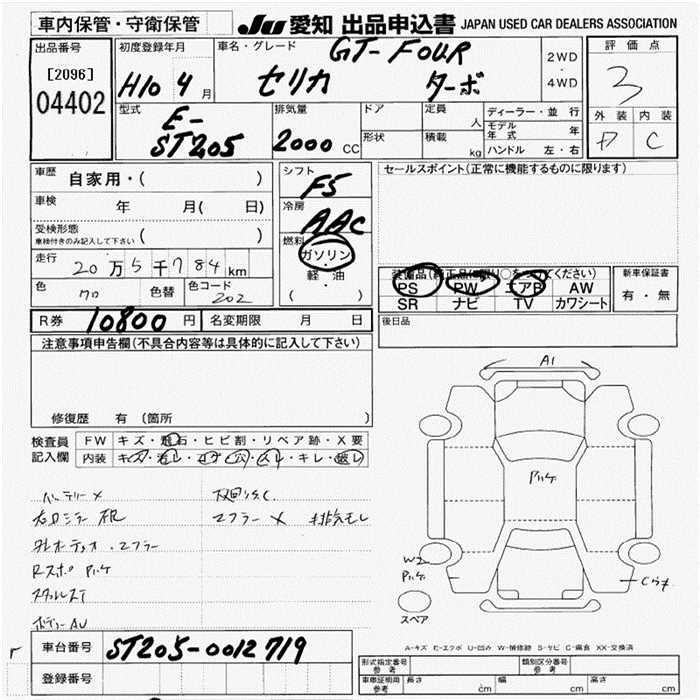 車内保管・守衛保管
JU 愛知 出品申込書 JAPAN USED CAR DEALERS ASSOCIATION
出品番号
[2096]
04402
初度登録年月
H10 4月
車名・グレード
GT-FOUR
セリカ ターボ
2WD
・
4WD
評価点
3
外装 内装
D C
型式
E-
ST205
排気量
2000 CC
ドア
形状
定員 人
積載 kg
ディーラー・並行
モデル年式 年
ハンドル 左・右
車歴 自家用・( )
車検 年 月( 日)
受検形態
車検付きのみ記入して下さい ( )
走行 20万5千784km
色 クロ 色替 色コード 202
シフト
F5
冷房
AAC
燃料
ガソリン
・
軽・油
( )
セールスポイント(正常に機能するものに限ります)
装備品(純正品に限り○をつけてください)
PS PW エアB AW
SR ナビ TV カワシート
新車保証書
有・無
後日品
R券 10800円 名変期限 月 日
注意事項申告欄(不具合内容等は具体的に記入して下さい)
修復歴 有 (箇所 )
検査員記入欄
FW キズ・飛石・ヒビ割・リペア跡・X要
内装 キズ・汚レ・コゲ・穴・スレ・キレ・破レ
バッテリーX
マフラー X 排気モレ
社外オーディオ・マフラー
Rスポ ハゲ
A1
ハゲ
W2
ハゲ
スペア
A-キズ E-エクボ U-凹み W-補修跡 S-サビ C-腐食 XX-交換済
車台番号 ST205-0012719
登録番号
形式指定番号
参考
類別区分番号
参考
車庫証明用
参考
長さ cm 幅 cm 高さ cm